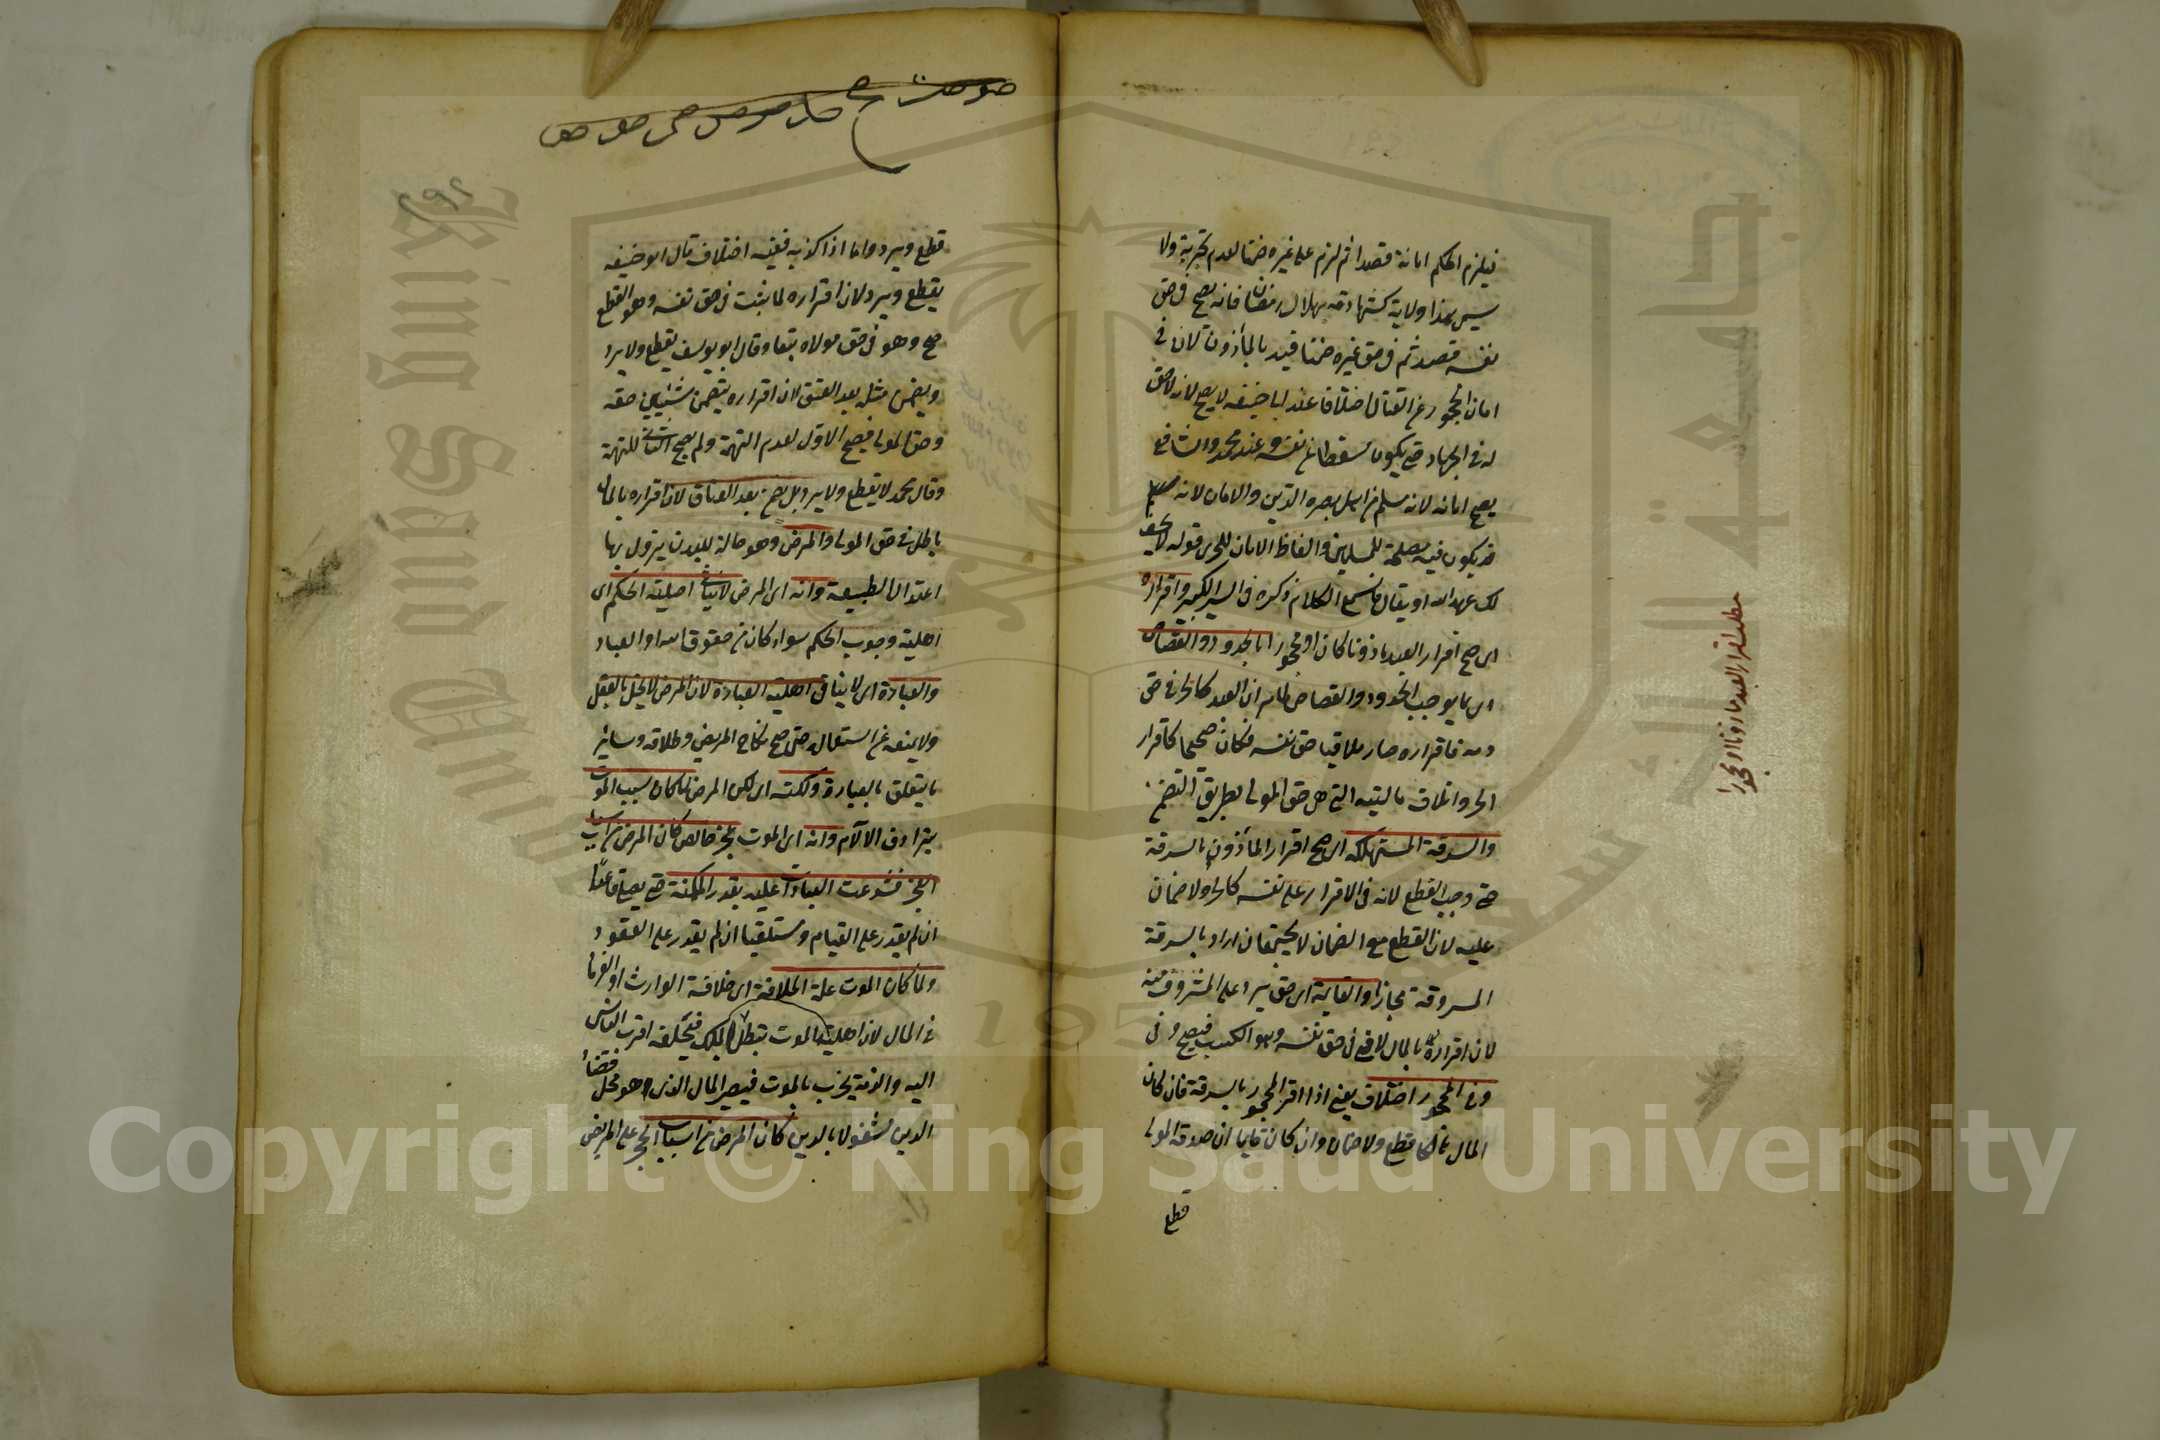 فيلزم الحكم امانة قصدا ثم لزم على غيره ضمنا لعدم تجزيه ولا
ليس هذا ولاية كشهادته بهلال رمضان فانه يصح في حق
نفسه قصد ثم في حق غيره ضمنا قيد بالمأذون لان في
امان المحجور عن القتال اختلافا عند ابا حنيفه لا يصح لانه لا حق
له في الجهاد حتى يكون مسقطا عن نفسه وعند محمد والشافعي
يصح امانه لانه مسلم من اهل نصرة الدين والامان لانه
قد يكون فيه مصلحة للمسلمين والفاظ الامان للحربي قوله لا تخف
لك عهد الله او يقال فاسمع الكلام ذكره في السير الكبير واقراره
اى صح اقرار العبد ماذونا كان او محجورا بالحدود والقصاص
اى بما يوجب الحدود والقصاص لما مر ان العبد كالحر في حق
دمه فاقراره صار ملاقيا حق نفسه فكان صحيحا كاقرار
الحر واتلاف ماليته التي هى حق المولى بطريق التضمن
والسرقة المستهلكه اى صح اقرار المأذون بالسرقة
حتى وجب القطع لانه في الاقرار على نفسه كالحر ولا ضمان
عليه لان القطع مع الضمان لا يجتمعان اراد بالسرقة
المسروقة مجازا والقائمة اى حتى يرد على المسروق منه
لان اقراره بالمال لاقى في حق نفسه وهو الكسب فيصح وفى
وفى المحجور اختلاف يعنى اذا اقر المحجور بالسرقة فان كان
المال هالكا قطع ولا ضمان وان كان قايما ان صدقه المولى
قطع
مطلب اقرار العبد ماذونا او محجورا
٢٩٢
قطع ويرد واما اذا كذبه ففيه اختلاف قال ابو حنيفه
يقطع ويرد لان اقراره لما ثبت في حق نفسه وهو القطع
صح وهو فى حق مولاه تبعا وقال ابو يوسف يقطع ولا يرد
ويضمن مثله بعد العتق لان اقراره يتضمن شيئين حقه
وحق المولى فيصح الاول لعدم التهمة ولم يصح الثانى للتهمة
وقال محمد لا يقطع ولا يرد بل يضمن بعد العتاق لان اقراره بالمال
باطل في حق المولى والمرض وهو حالة للبدن يزول بها
اعتدال الطبيعة وانه اى المرض لا ينافى اهلية الحكم اى
اهلية وجوب الحكم سواء كان من حقوق الله او العباد
والعبادة اى لا ينافى اهلية العبادة لان المرض لا يخل بالعقل
ولا يمنعه عن استعماله حتى صح نكاح المريض وطلاقه وسائر
ما يتعلق بالعبارة ولكنه اى لكن المرض لما كان سبب الموت
بترادف الآلام وانه اى الموت عجز خالص كان المرض من اسباب
العجز فشرعت العبادات عليه بقدر المكنة حتى يصلى قاعدا
ان لم يقدر على القيام ومستلقيا ان لم يقدر على القعود
ولما كان الموت علة الخلافة اى خلافة الوارث او الغرماء
في المال لان اهلية بالموت تبطل الملك فيخلفه اقرب الناس
اليه والذمة يخرب بالموت فيصير المال الذى هو محل قضاء
الدين مشغولا بالدين كان المرض من اسباب الحجر على المريض